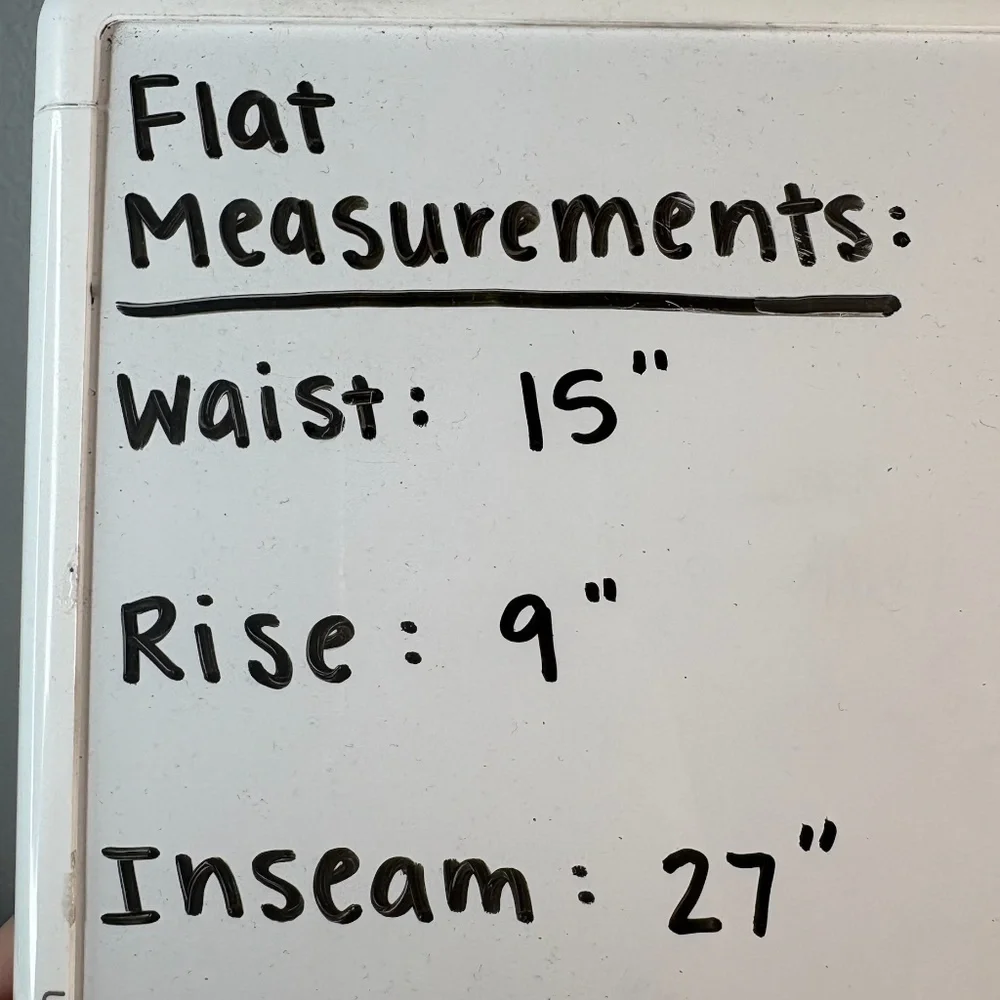 Flat
Measurements:
Waist: 15"
Rise: 9"
Inseam: 27"